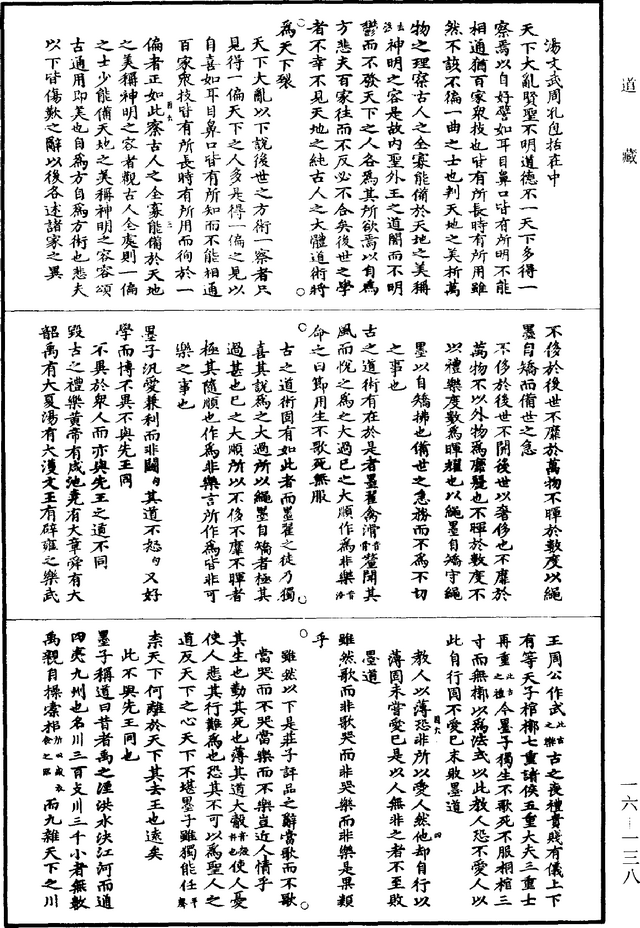 道藏
湯文武周孔包括在中
天下大亂賢聖不明道德不一天下多得一
察焉以自好譬如耳目鼻口皆有所明不能
相通猶百家衆技也皆有所長時有所用雖
然不該不徧一曲之士也判天地之美析萬
物之理察古人之全寡能備於天地之美稱
神明之容是故內聖外王之道闇而不明
鬱而不發天下之人各為其所欲焉以自為
方悲夫百家往而不反必不合矣後世之學
者不幸不見天地之純古人之大體道術將
為天下裂
天下大亂以下說後世之方術一察者只
見得一偏天下之人多是得一偏之見以
自喜如耳目鼻口皆有所知而不能相通
百家衆技皆有所長時有所用而徇於一
偏者正如此察古人之全寡能備於天地
之美稱神明之容者觀古人全處則一偏
之士少能備天地之美稱神明之容容頌
古通用即美也自為方自為方術也悲夫
以下皆傷歎之辭以後各述諸家之異
不侈於後世不靡於萬物不暉於數度以繩
墨自矯而備世之急
不侈於後世不開後世以奢侈也不靡於
萬物不以外物為靡麗也不暉於數度不
以禮樂度數為暉耀也以繩墨自矯守繩
墨以自矯拂也備世之急務而不為不切
之事也
古之道術有在於是者墨翟禽滑釐聞其
風而悅之為之大過已之大順作為非樂
命之曰節用生不歌死無服
古之道術固有如此者而墨翟之徒乃獨
喜其說為之大過所以繩墨自矯者極其
過甚也已之大順所以不侈不靡不暉者
極其隨順也作為非樂言所作為皆非可
樂之事也
墨子汎愛兼利而非鬭其道不怒又好
學而博不異不與先王同
不異於衆人而亦與先王之道不同
毀古之禮樂黃帝有咸池堯有大章舜有大
韶禹有大夏湯有大濩文王有辟雍之樂武
王周公作武此古之樂古之喪禮貴賤有儀上下
有等天子棺槨七重諸侯五重大夫三重士
再重此古之禮今墨子獨生不歌死不服桐棺三
寸而無槨以為法式以此教人恐不愛人以
此自行固不愛己未敗墨道
教人以薄恐非所以愛人然他却自行以
薄固未嘗愛已是以人無非之者不至敗
墨道
雖然歌而非歌哭而非哭樂而非樂是果類
乎
雖然以下是莊子評品之辭當歌而不歌
當哭而不哭當樂而不樂豈近人情乎
其生也勤其死也薄其道大觳使人憂
使人悲其行難為也恐其不可以為聖人之
道反天下之心天下不堪墨子雖獨能任
柰天下何離於天下其去王也遠矣
此不與先王同也
墨子稱道曰昔者禹之湮洪水決江河而通
四夷九州也名川三百支川三千小者無數
禹親自操橐耜而九雜天下之川
一六－一三八